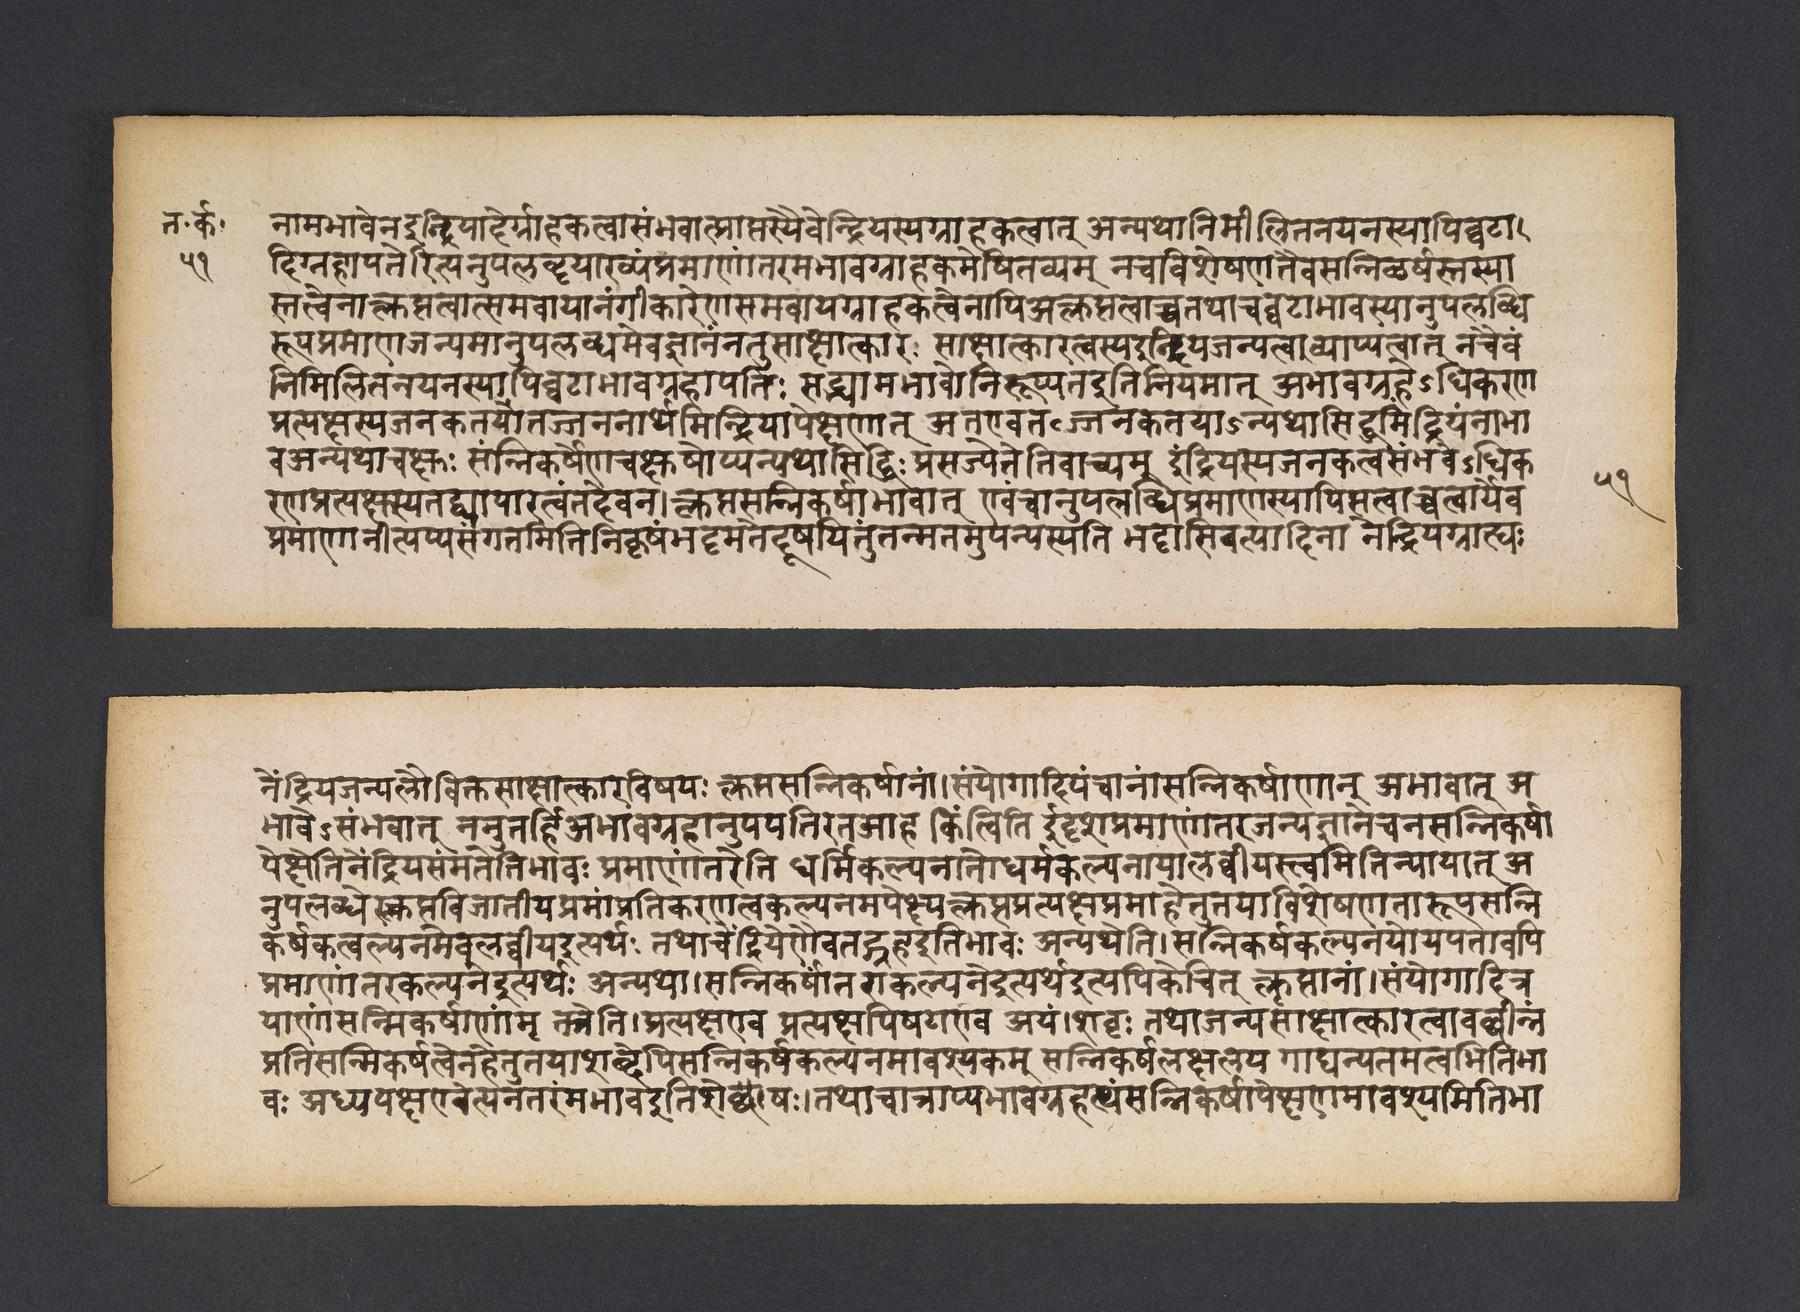 त॰र्क॰
५१
नामभावेनइन्द्रियादेर्ग्राहकत्वासंभवात्प्राप्तस्यैवेन्द्रियस्यग्राहकत्वात् अन्यथानिमीलितनयनस्यापिघटा
दिग्रहापत्तेरित्यनुपलब्ध्याख्यंप्रमाणांतरमभावग्राहकमेषितव्यम् नचविशेषणतैवसन्निकर्षस्तस्या
स्तत्वेनाक्लृप्तत्वात्समवायानंगीकारेणसमवायग्राहकत्वेनापिअक्लृप्तत्वाच्चतथाचघटाभावस्यानुपलब्धि
रूपप्रमाणजन्यमानुपलब्धमेवज्ञानंनतुसाक्षात्कारः साक्षात्कारत्वस्यइन्द्रियजन्यत्वाव्याप्यत्वात् नचैवं
निमिलितनयनस्यापिघटाभावग्रहापत्तिः सद्भ्यामभावोनिरूप्यतइतिनियमात् अभावग्रहेऽधिकरण
प्रत्यक्षस्यजनकतयातज्जननार्थमिन्द्रियापेक्षणात् अतएवतज्जनकतयाऽन्यथासिद्धमिंद्रियंनाभा
वअन्यथाचक्षः संन्निकर्षेणचक्षषोप्यन्यथासिद्धिः प्रसज्येतेतिवाच्यम् इंद्रियस्यजनकत्वसंभवेऽधिक
रणप्रत्यक्षस्यतद्व्यापारत्वंतदेवन।क्लृप्तसन्निकर्षाभावात् एवंचानुपलब्धिप्रमाणस्यापिसत्वाच्चत्वार्येव
५१
प्रमाणानीत्यप्यसंगतमितिनिकृषंभट्टमतंदूषयितुंतन्मतमुपन्यस्यति भट्टास्त्वित्यादिना नेन्द्रियग्राह्यः
नेंद्रियजन्यलौकिकसाक्षात्कारविषयः क्लृप्तसन्निकर्षानां।संयोगादिपंचानांसन्निकर्षाणान् अभावात् अ
भावेऽसंभवात् ननुतर्हिअभावग्रहानुपपतिरतआह किंत्विति ईदृशप्रमाणांतरजन्यज्ञानेचनसन्निकर्षा
पेक्षेतिनेंद्रियसंमतेतिभावः प्रमाणांतरेति धर्मिकल्पनातोधर्मकल्पनायालघ्वीयस्त्वमितिन्यायात् अ
नुपलब्धेरक्लृप्तविजातीयप्रमांप्रतिकरणत्वकल्पनमपेक्ष्यक्लृप्तप्रत्यक्षप्रमाहेतुतयाविशेषणतारूपसन्नि
कर्षकत्वल्पनमेवलघ्वीयइत्यर्थः तथाचेंद्रियेणैवतद्ग्रहइतिभावः अन्यथेति।सन्निकर्षकल्पनयोयपतावपि
प्रमाणांतरकल्पनेइत्यर्थः अन्यथा।सन्निकर्षांतराकल्पनेइत्यर्थइत्यपिकेचित् क्लृप्तानां।संयोगादित्र
याणांसन्निकर्षाणांमृ क्तेति।प्रत्यक्षएव प्रत्यक्षपिषटाएव अयं।शब्दः तथाजन्यसाक्षात्कारत्वावच्छीन्नं
प्रतिसन्मिकर्षत्वेनहेतुतयाशब्देपिसन्निकर्षकल्पनमावश्यकम् सन्निकर्षलक्षलंय गाद्यन्यतमत्वमितिभा
वः अध्यपक्षएवेत्यनंतरंमभावइतिशेषः।तथाचात्राप्यभावग्रहत्थंसन्निकर्षापेक्षणमावश्यमितिभा